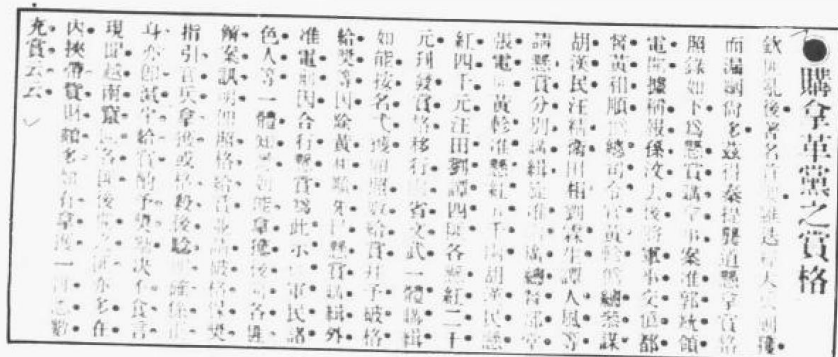 ●購拿革黨之賞格
欽匪亂後著名首要雖迭
而漏網尚多茲得秦提龔道懸拿賞格
照錄如下爲懸賞購拿事案准郭統領
電開據稱報孫汶去後將軍事交僞都
督黃和順僞總司令官黃 僞總參謀
胡漢民汪精衛田桐劉霖生譚人鳳等
請懸賞分別購緝 准 總督部堂
張電 黃 准懸紅五千 胡漢民懸
紅四千元汪田劉譚四匪各懸紅二千
元刊發賞格移行 省文武一體購緝
如能按名弋獲 照數給賞并予破格
給獎等因除黃和順 已懸賞購緝外
准電前因合行懸賞爲此示 軍民諸
色人等一體知悉如能拿獲後 各匪
解案訊明 照格給 並 破格保獎
指引官兵拿獲或格殺後驗明確係正
身亦 減半給賞 予獎勵決不食言
現聞越南竄 各匪後 之 亦多在
內挾帶貲財頗多如有拿獲一 悉數
充賞云云